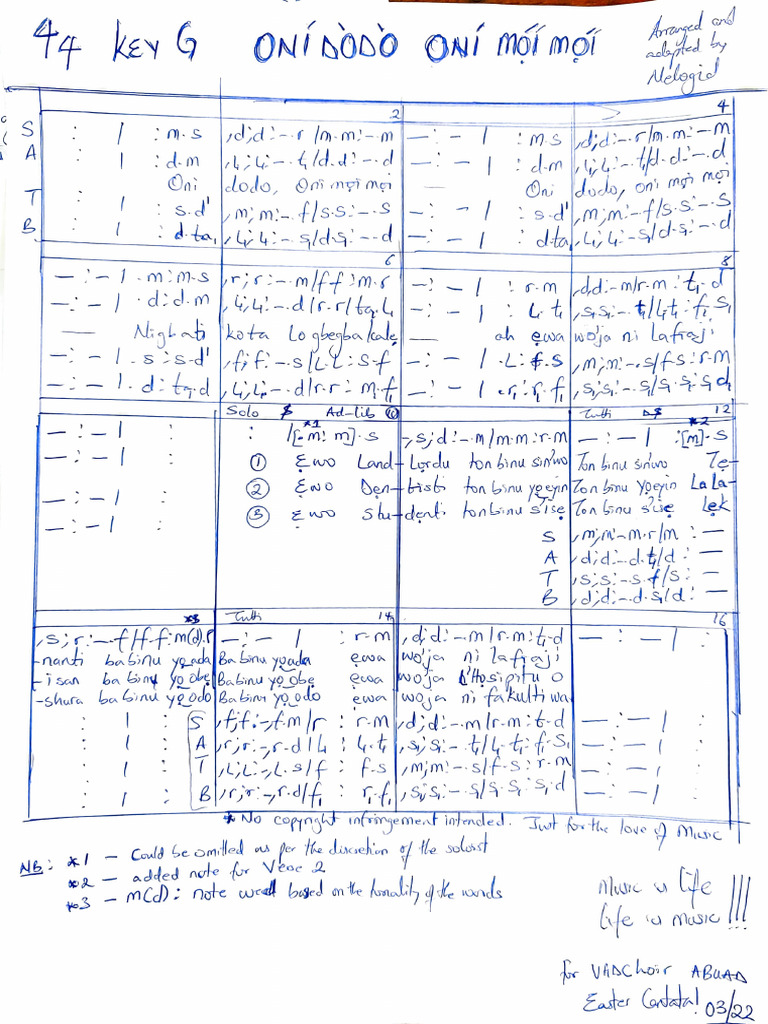 4/4 KEY G ONÍ DÒDÒ ONÍ MỌ́Í MỌ́Í
Arranged and
adapted by
Nelogid
2 4
S : / : m.s ,d;d:-.r/m.m:-.m -:-/ : m.s ,d;d:-.r/m.m:-.m
A : / : d.m ,l₁;l₁:-.t₁/d.d:-.d -:-/ : d.m ,l₁;l₁:-.t₁/d.d:-.d
Oni dodo, Oni mọi mọi — Oni dodo, oni mọi mọi
T : / : s.d' ,m;m:-.f/s.s:-.s -:-/ : s.d' ,m;m:-.f/s.s:-.s
B : / : d.ta₁ ,l₁;l₁:-.s₁/d.s₁:-.d -:-/ : d.ta₁ ,l₁;l₁:-.s₁/d.s₁:-.d
6 8
-:-/.m:m.s ,r;r:-.m/f.f:m.r -:-/ : r.m ,d;d:-.m/r.m:t₁.d
-:-/.d:d.m ,l₁;l₁:-.d/r.r/ta₁.l₁ -:-/ : l₁.t₁ ,s₁;s₁:-.t₁/l₁.t₁:f₁.s₁
— Nigbati kota Logbegba kalẹ — ah ẹwa wo'ja ni lafiaji
-:-/.s:s.d' ,f;f:-.s/l.l:s.f -:-/.l:f.s ,m;m:-.s/f.s:r.m
-:-/.d:ta₁.d ,l₁;l₁:-.d/r.r:m.f₁ -:-/.r₁:r₁.f₁ ,s₁;s₁:-.s₁/s₁.s₁:s₁.d₁
Solo $ Ad-lib Tutti D$ 12
-:-/ : : *1/[-m:m].s -,s;d:-.m/m.m:r.m -:-/ *2:[m].s
-:-/ : ① Ẹwo Land-Lordu ton binu sin'wo Ton binu sin'wo Tẹ-
② Ẹwo Dẹn-tisti ton binu yọeyin Ton binu yọeyin La La-
-:-/ : ③ Ẹwo Stu-dẹnti ton binu s'isẹ Ton binu s'isẹ Lẹk
-:-/ :
S ,m;m:-m.r/m : -
A ,d;d:-.d.t₁/d : -
T ,s;s:-s.f/s : -
B ,d;d:-.d.s₁/d : -
*3 Tutti 14 16
,s;r:-.f/f.f:m(d).r -:-/ : r.m ,d;d:-.m/r.m:t₁.d -:-/ :
-nanti ba binu yọ ada Ba binu yọ ada ẹwa wo'ja ni lafiaji
-isan ba binu yọ ọbẹ Ba binu yọ ọbẹ ẹwa wo'ja L'Hospitu o
-shura ba binu yọ odo Ba binu yọ odo ẹwa wo'ja ni fakulti wa
: / : S ,f;f:-,f.m/r : r.m ,d;d:-.m/r.m:t₁.d -:-/ :
: / : A ,r;r:-,r.d/l₁ : l₁.t₁ ,s₁;s₁:-.t₁/l₁.t₁:f₁.s₁ -:-/ :
: / : T ,l;l:-,l.s/f : f.s ,m;m:-.s/f.s:r.m -:-/ :
: / : B ,r;r:-,r.d/f₁ : r₁.f₁ ,s₁;s₁:-.s₁/s₁.s₁:s₁.d -:-/ :
* No copyright infringement intended. Just for the love of Music
NB: *1 – Could be omitted as per the discretion of the soloist
*2 – added note for Verse 2
*3 – m(d): note used based on the tonality of the words
Music is life
life is music !!!
for VADChoir ABUAD
Easter Cantata! 03/22